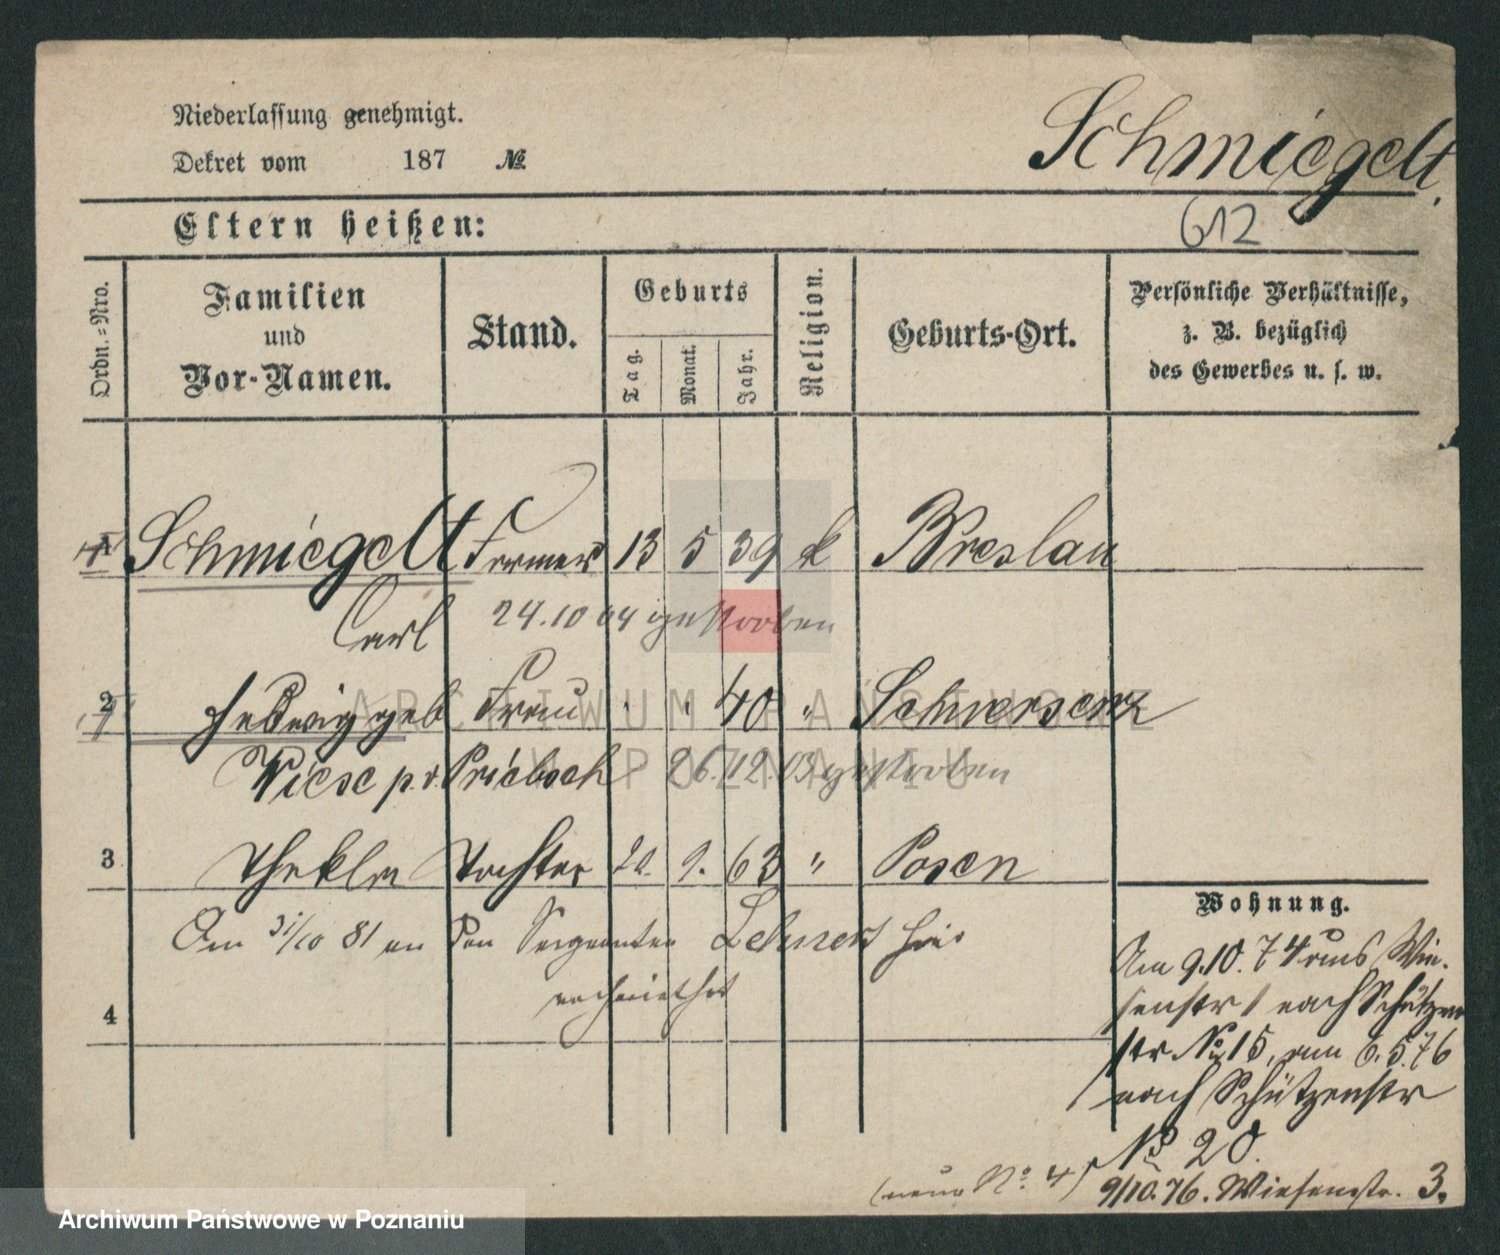 Niederlassung genehmigt.
Dekret vom 187 №
Schmiegelt.
612
Eltern heißen:
Ordn.=Nro.
Familien
und
Vor-Namen.
Stand.
Geburts
Tag.
Monat.
Jahr.
Religion.
Geburts-Ort.
Persönliche Verhältnisse,
z. B. bezüglich
des Gewerbes u. s. w.
1 Schmiegelt Former 13 5 39 k Breslau
Carl 24.10 04 gestorben
2 Hedwig geb Frau " " 40 " Schwersenz
Wiese p. v. Priebsch 26.12.03 gestorben
3 Thekla Tochter 20. 9. 63 " Posen
Am 31/10 81 an den Sergeanten Lehnert hier
verheirathet
4
Wohnung.
Am 9.10.74 aus Wie-
senstr 1 nach Schützen
str № 15, am 6.5.76
nach Schützenstr
№ 20.
(neue No. 4) 9/10.76. Wiesenstr. 3.
ARCHIWUM PAŃSTWOWE
W POZNANIU
Archiwum Państwowe w Poznaniu